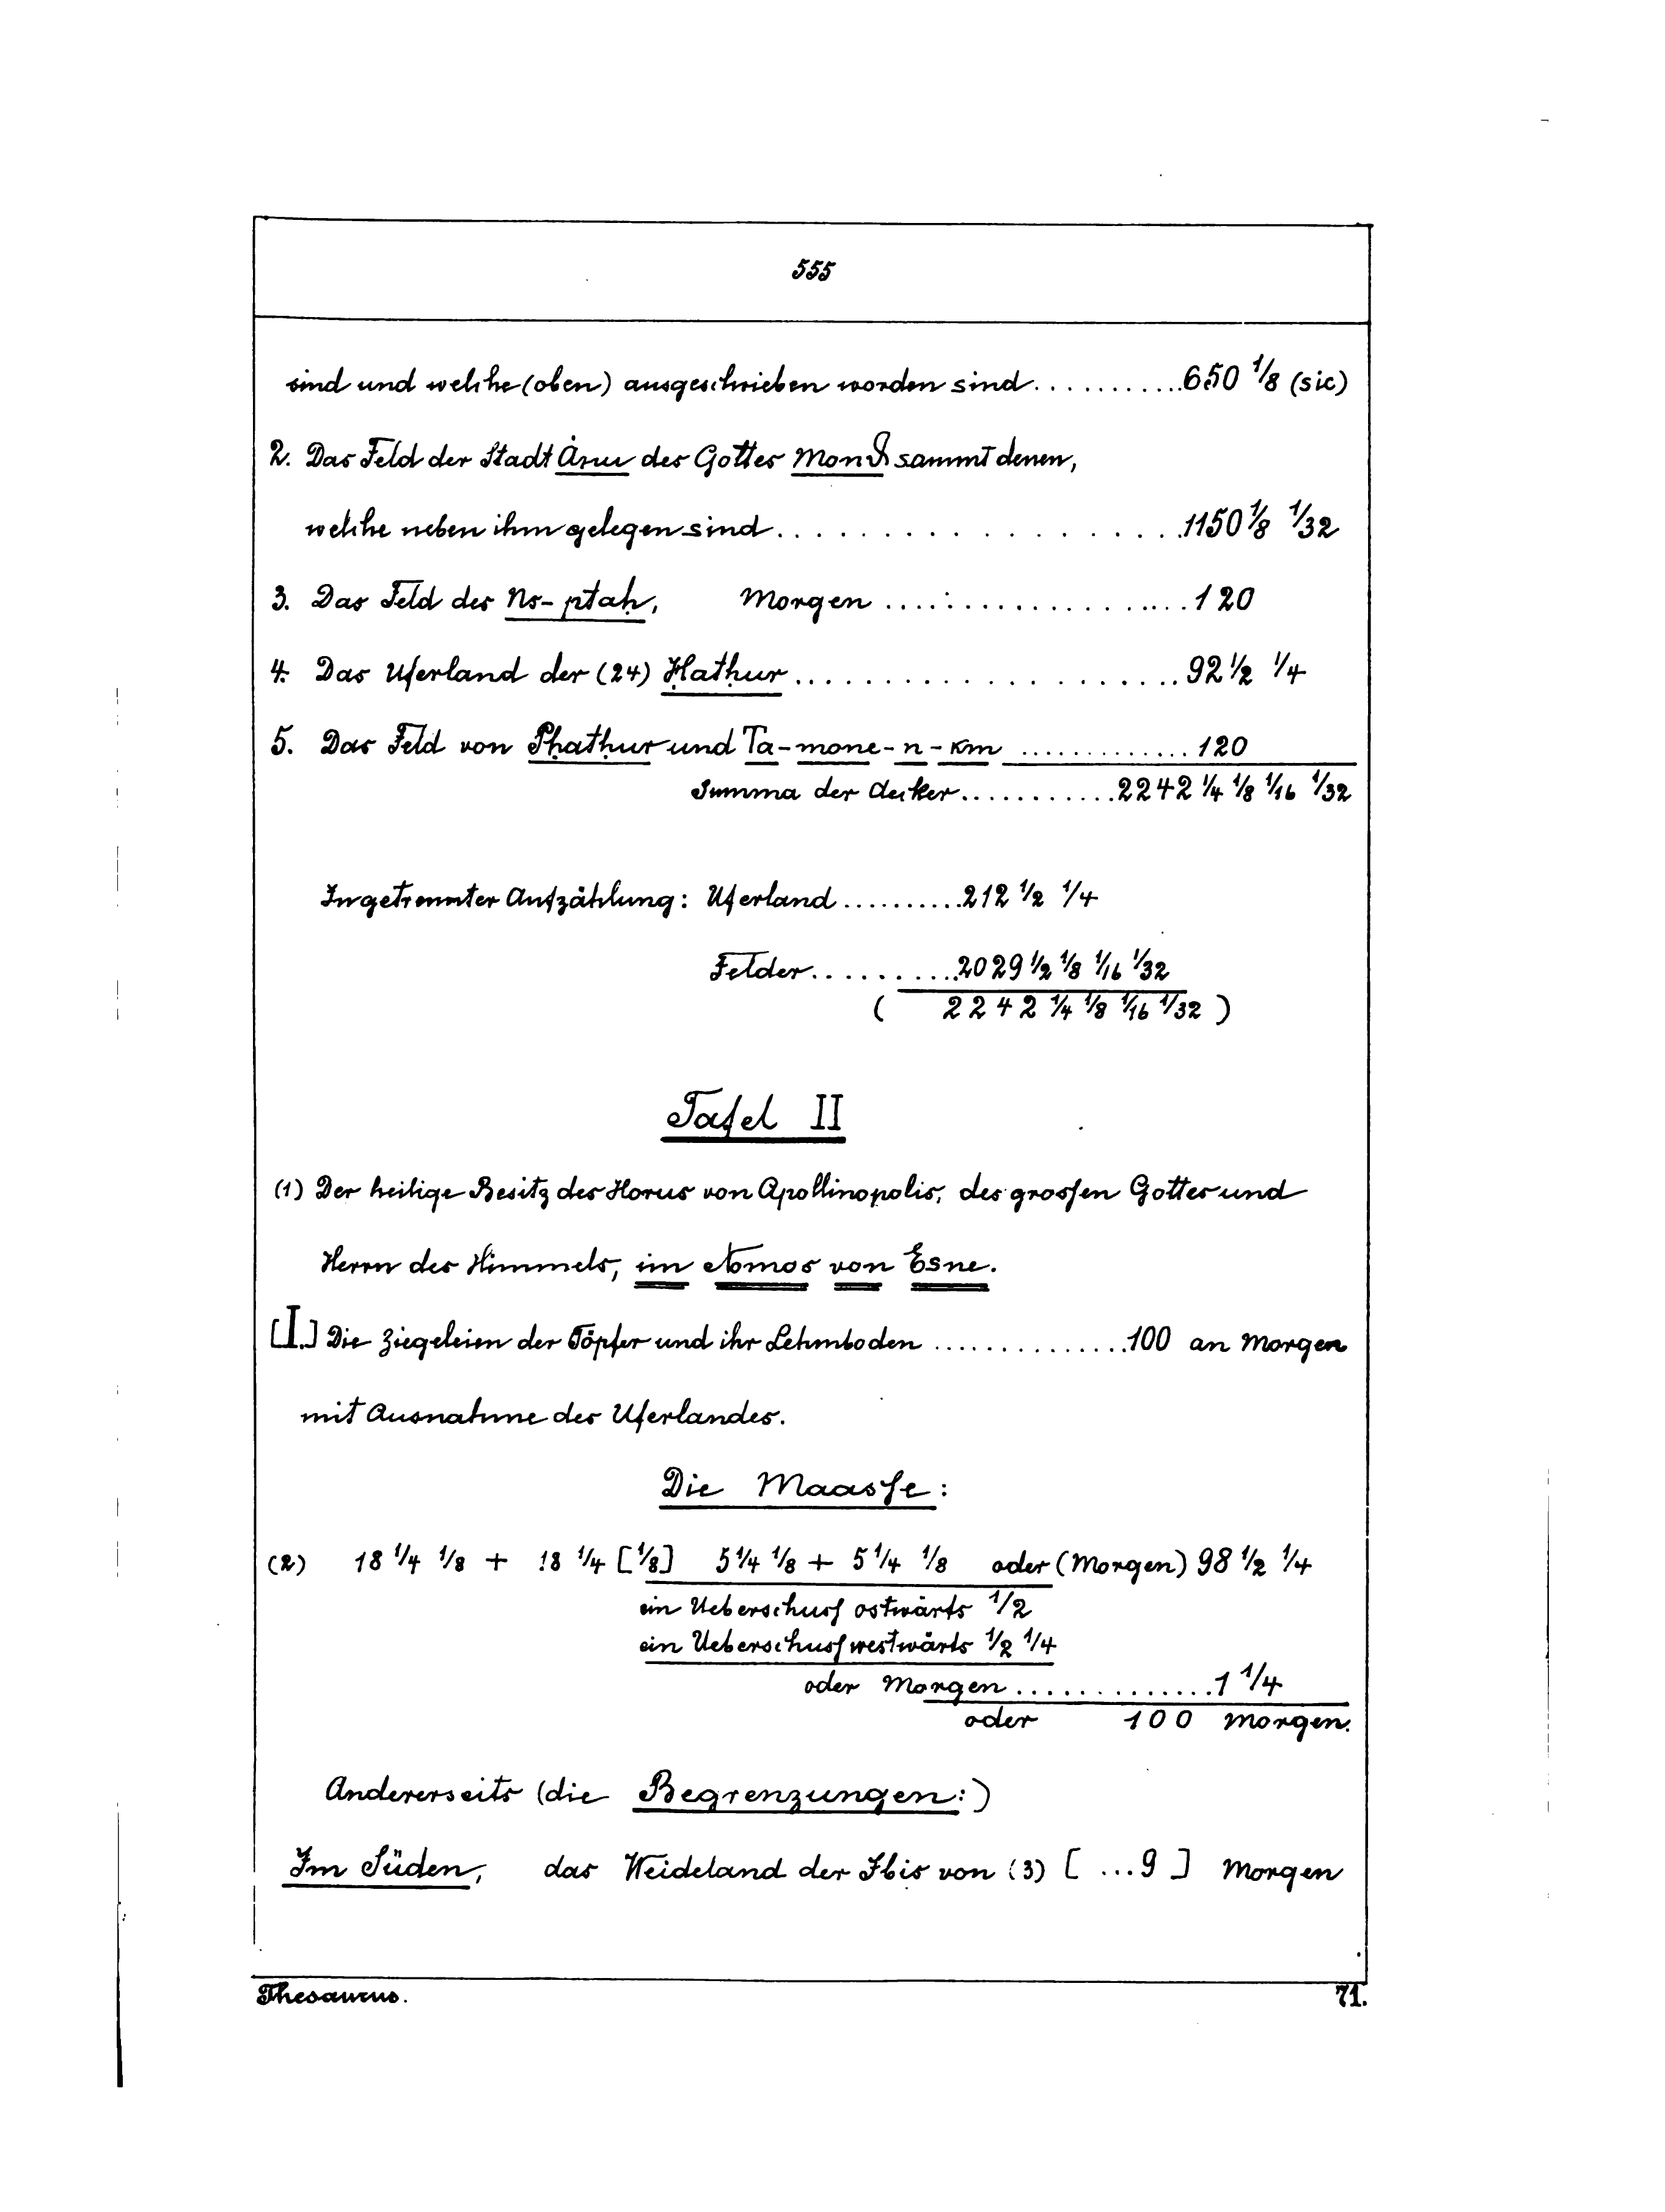 555
sind und welche (oben) ausgeschrieben worden sind...........650 1/8 (sic)
2. Das Feld der Stadt des Gottes sammt denen,
welche neben ihm gelegen sind...................1150 1/8 1/32
3. Das Feld des Ns-ptaḥ, Morgen ...................120
4. Das Uferland der (24) Ḥatḥur.....................92 1/2 1/4
5. Das Feld von Pḥatḥur und Ta-mone-n-Km .............120
Summa der Aecker............2242 1/4 1/8 1/16 1/32
In getrennter Aufzählung: Uferland..........212 1/2 1/4
Felder..........2029 1/2 1/8 1/16 1/32
( 2242 1/4 1/8 1/16 1/32 )
Tafel II
(1) Der heilige Besitz des Horus von Apollinopolis, des grossen Gottes und
Herrn des Himmels, im Nomos von Esne.
[I.] Die Ziegeleien der Töpfer und ihr Lehmboden ..............100 an Morgen
mit Ausnahme des Uferlandes.
Die Maasse:
(2) 18 1/4 1/8 + 18 1/4 [1/8] 5 1/4 1/8 + 5 1/4 1/8 oder (Morgen) 98 1/2 1/4
ein Ueberschuss ostwärts 1/2
ein Ueberschuss westwärts 1/2 1/4
oder Morgen..............1 1/4
oder 100 Morgen.
Andererseits (die Begrenzungen:)
Im Süden, das Weideland der Ibis von (3) [ ...9 ] Morgen
Thesaurus. 71.